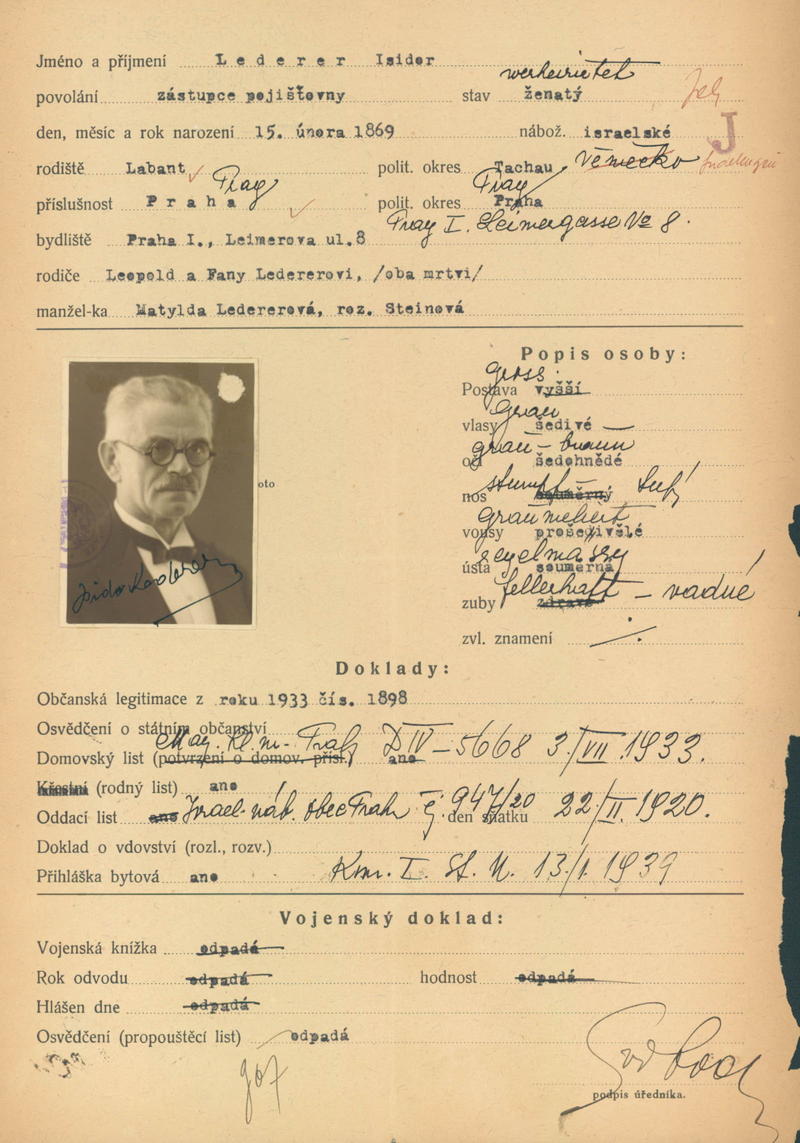 Jméno a příjmení Lederer Isidor
verheiratet
povolání zástupce pojišťovny stav ženatý
den, měsíc a rok narození 15. února 1869 nábož. israelské
J
rodiště Labant polit. okres Tachau, Německo
Prag Prag
příslušnost Praha polit. okres Praha
Prag I. Leimergasse No 8.
bydliště Praha I., Leimerova ul.8
rodiče Leopold a Fany Ledererovi, /oba mrtvi/
manžel-ka Matylda Ledererová, roz. Steinová
Popis osoby:
gross.
Postava vyšší
grau
vlasy šedivé
grau-braun
oči šedohnědé
oto
stumpf
nos souměrný tupý
grau meliert
vousy prošedivělé
regelmässig
ústa souměrná
fellerhaft - vadné
zuby zdravé
zvl. znamení
Isidor Lederer
Doklady:
Občanská legitimace z roku 1933 čís. 1898
Osvědčení o státním občanství
Mag. hl. m. Prahy D IV - 5668 3./VII. 1933.
Domovský list (potvrzení o domov. přísl.) ano
Křestní (rodný list) ano
Oddací list ano Israel. náb. obec Praha čj. 947/20 den sňatku 22/II. 1920.
Doklad o vdovství (rozl., rozv.)
Přihláška bytová ano Kom. I. St. M. 13/1. 1939
Vojenský doklad:
Vojenská knížka odpadá
Rok odvodu odpadá hodnost odpadá
Hlášen dne odpadá
Osvědčení (propouštěcí list) odpadá
podpis úředníka.